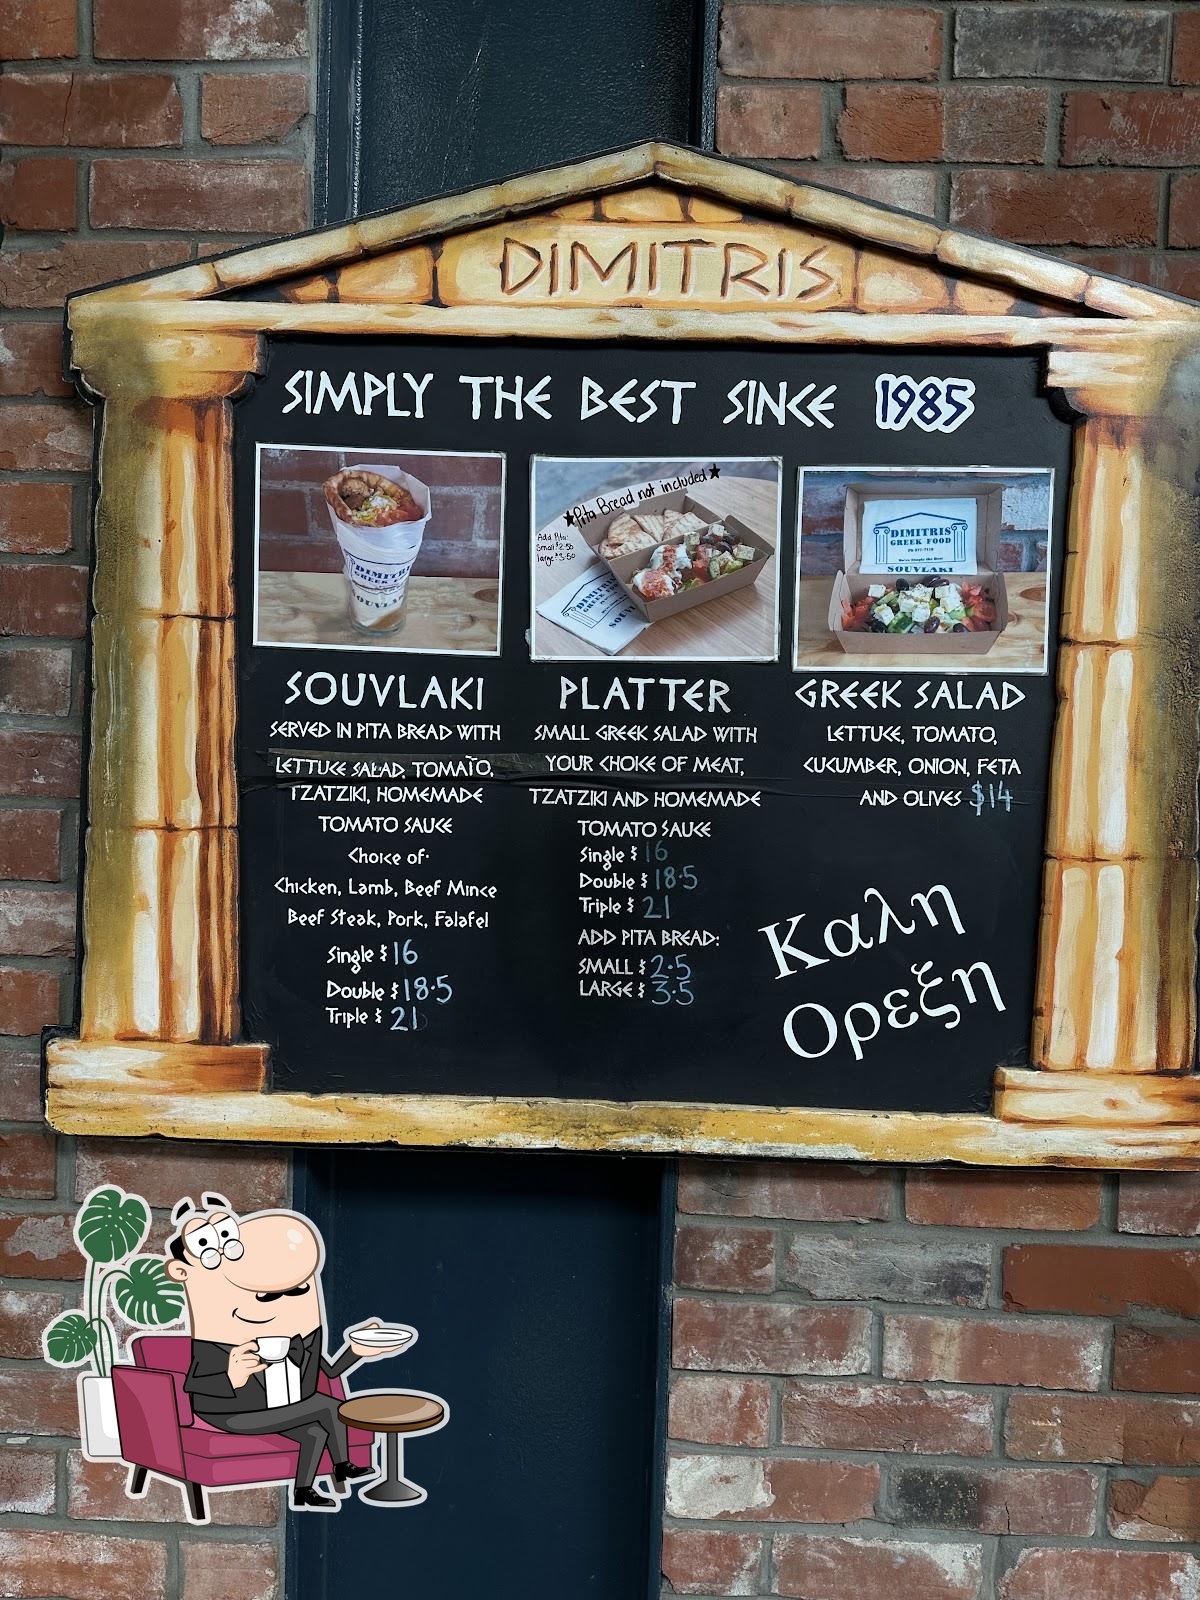 DIMITRIS
SIMPLY THE BEST SINCE 1985
★Pita Bread not included★
Add Pita:
Small $2.50
large $3.50
DIMITRIS
GREEK FOOD
SOUVLAKI
SOUVLAKI
SERVED IN PITA BREAD WITH
LETTUCE SALAD, TOMATO,
TZATZIKI, HOMEMADE
TOMATO SAUCE
Choice of:
Chicken, Lamb, Beef Mince
Beef Steak, Pork, Falafel
Single $16
Double $18.5
Triple $21
PLATTER
SMALL GREEK SALAD WITH
YOUR CHOICE OF MEAT,
TZATZIKI AND HOMEMADE
TOMATO SAUCE
Single $16
Double $18.5
Triple $21
ADD PITA BREAD:
SMALL $2.5
LARGE $3.5
GREEK SALAD
LETTUCE, TOMATO,
CUCUMBER, ONION, FETA
AND OLIVES $14
Καλη
Ορεξη